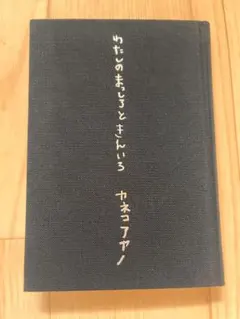 わたしのまっしろときんいろ
カネコアヤノ